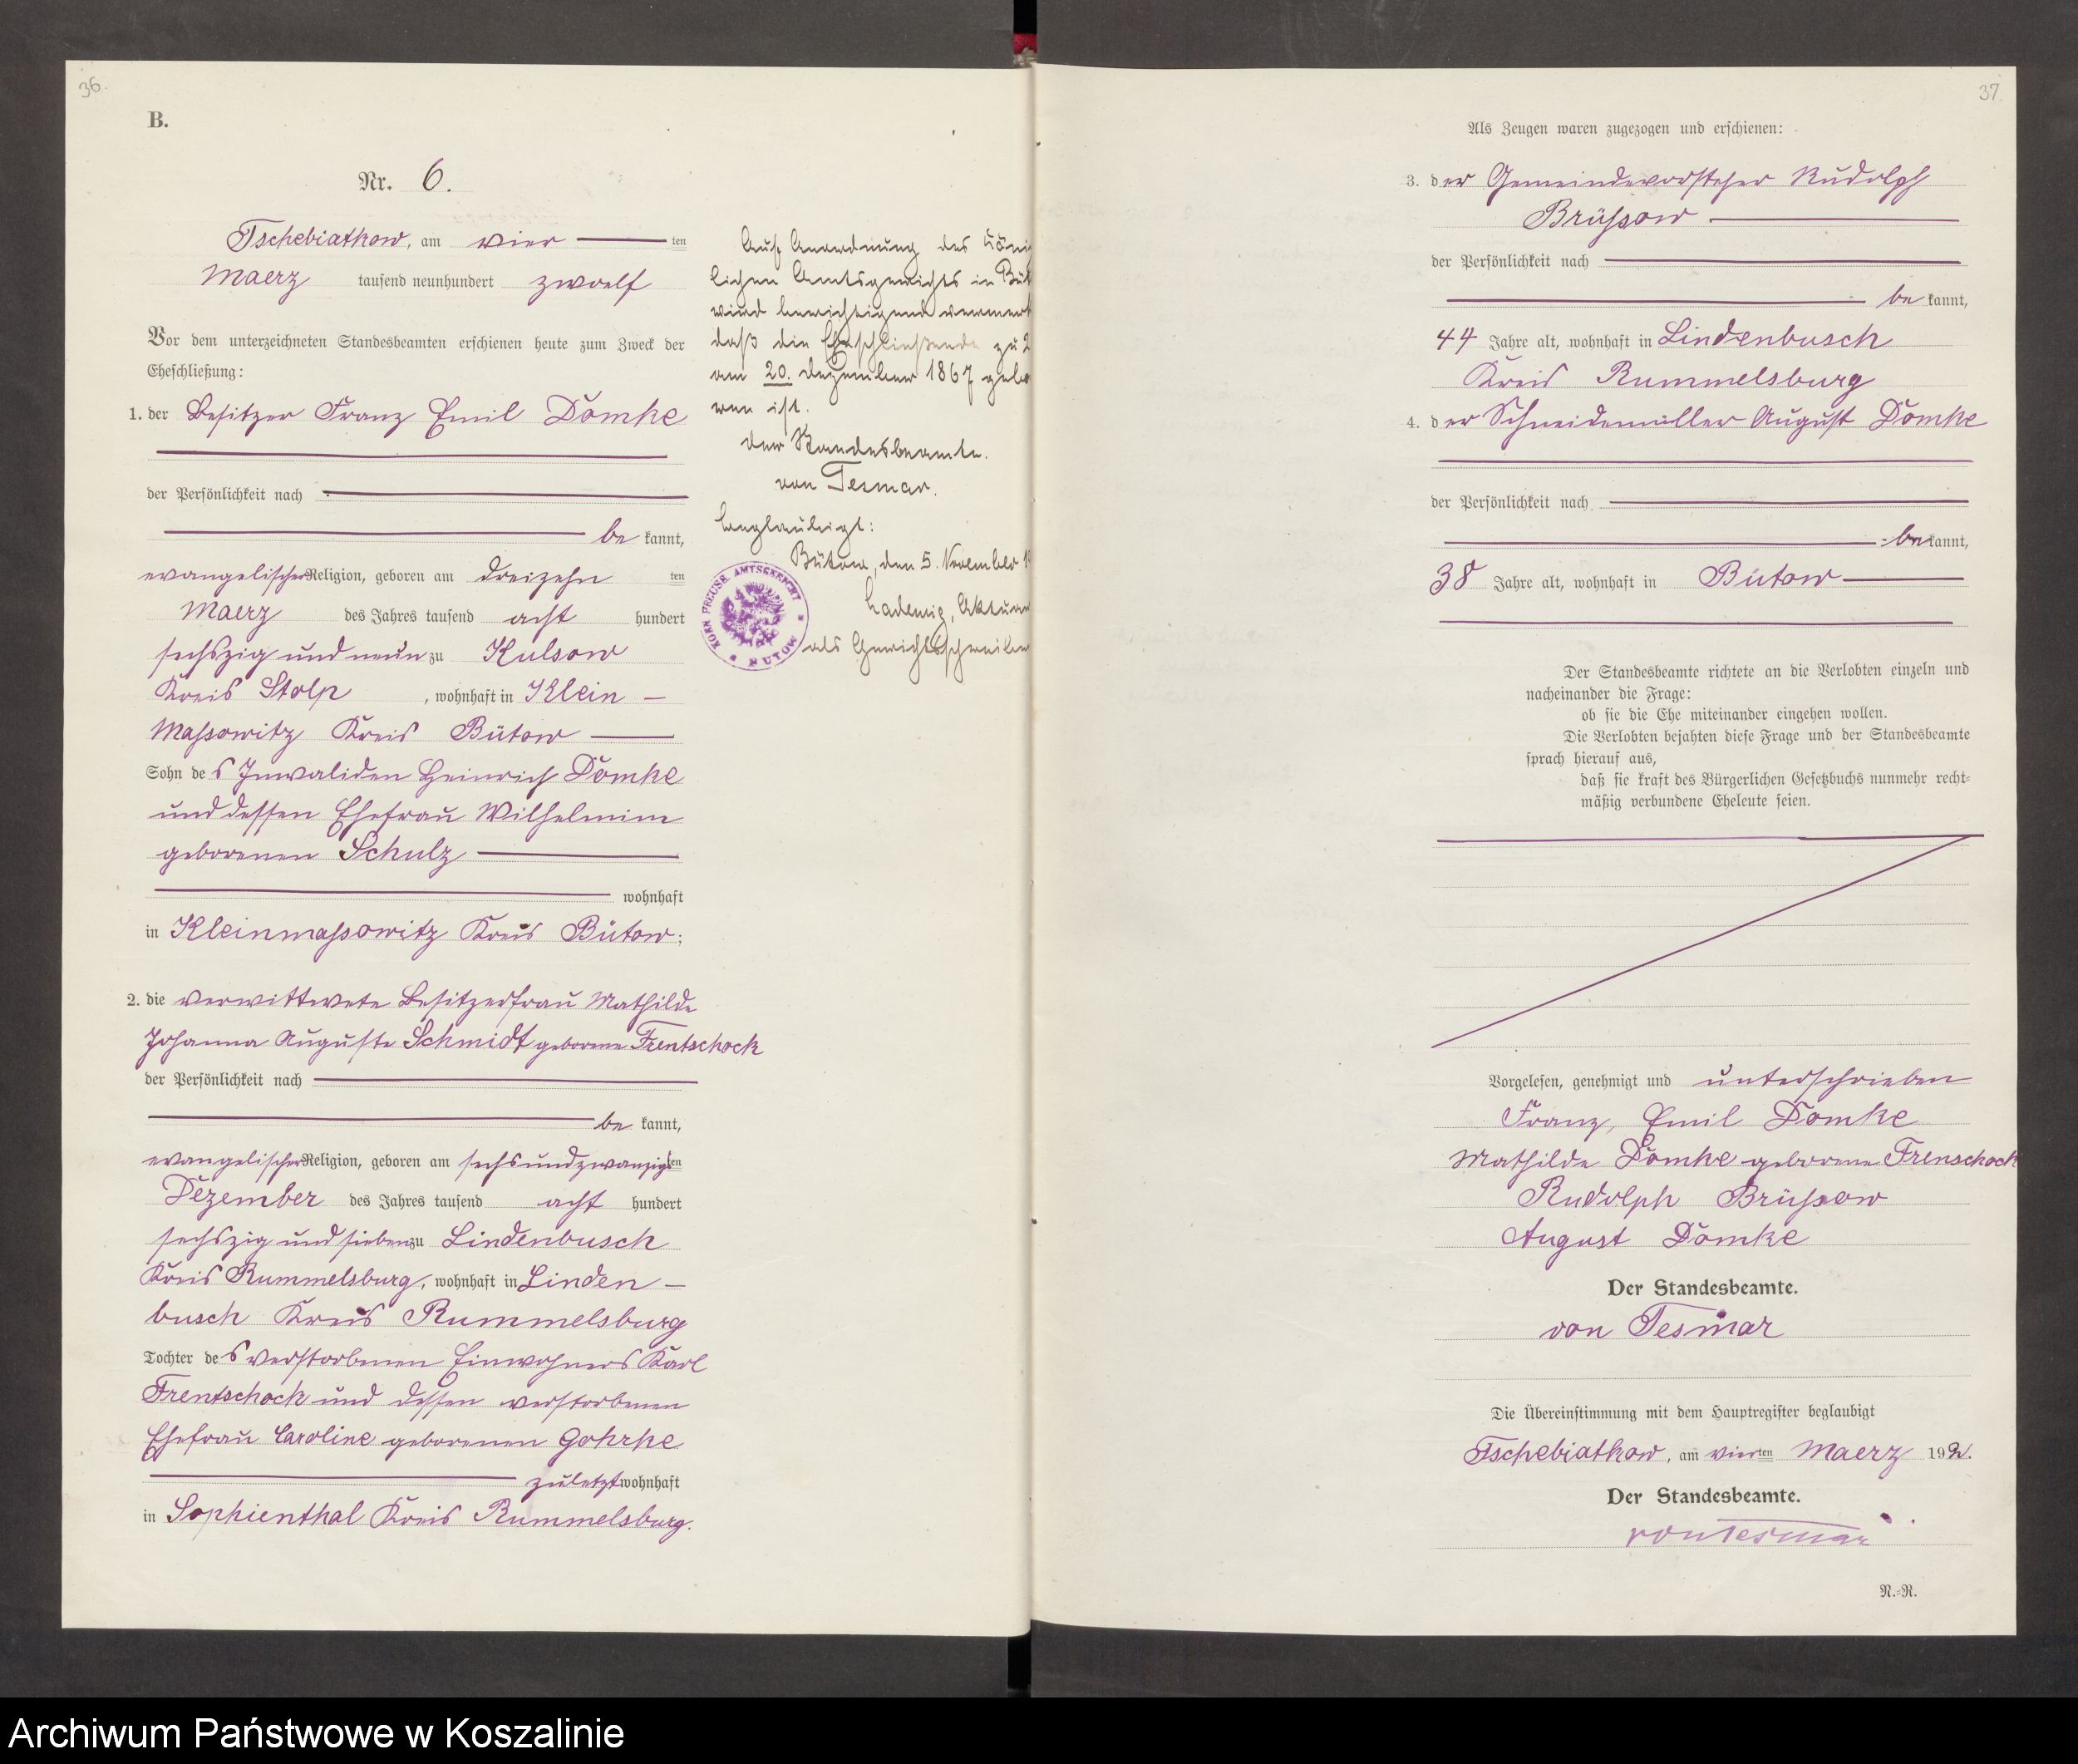 36.
B.
Nr. 6.
Tschebiatkow, am vier ten
Maerz tausend neunhundert zwoelf
Vor dem unterzeichneten Standesbeamten erschienen heute zum Zweck der
Eheschließung:
1. der Besitzer Franz Emil Domke
der Persönlichkeit nach
be kannt,
evangelischer Religion, geboren am dreizehn ten
Maerz des Jahres tausend acht hundert
sechszig und neun zu Kulsow
Kreis Stolp, wohnhaft in Klein-
Massowitz Kreis Bütow
Sohn des Invaliden Heinrich Domke
und dessen Ehefrau Wilhelmine
geborenen Schulz
wohnhaft
in Kleinmassowitz Kreis Bütow;
2. die verwittwete Besitzerfrau Mathilde
Johanna Auguste Schmidt geborene Frentschock
der Persönlichkeit nach
be kannt,
evangelischer Religion, geboren am sechsundzwanzigsten
Dezember des Jahres tausend acht hundert
sechszig und sieben zu Lindenbusch
Kreis Rummelsburg, wohnhaft in Linden-
busch Kreis Rummelsburg
Tochter des verstorbenen Einwohners Karl
Frentschock und dessen verstorbenen
Ehefrau Caroline geborenen Gohrke
zuletzt wohnhaft
in Sophienthal Kreis Rummelsburg.
Auf Anordnung des Köni
lichen Amtsgerichts in Büt
wird berichtigend vermerk
daß die Eheschließende zu 2
am 20. Dezember 1867 gebo
ren ist.
Der Standesbeamte.
von Tesmar.
Beglaubigt:
Bütow, den 5. November 1
Aktuar
als Gerichtsschreiber
KÖN. PREUSS. AMTSGERICHT
* BUTOW *
37.
Als Zeugen waren zugezogen und erschienen:
3. der Gemeindevorsteher Rudolph
Brüssow
der Persönlichkeit nach
be kannt,
44 Jahre alt, wohnhaft in Lindenbusch
Kreis Rummelsburg
4. der Schneidemüller August Domke
der Persönlichkeit nach
be kannt,
38 Jahre alt, wohnhaft in Bütow
Der Standesbeamte richtete an die Verlobten einzeln und
nacheinander die Frage:
ob sie die Ehe miteinander eingehen wollen.
Die Verlobten bejahten diese Frage und der Standesbeamte
sprach hierauf aus,
daß sie kraft des Bürgerlichen Gesetzbuchs nunmehr recht-
mäßig verbundene Eheleute seien.
Vorgelesen, genehmigt und unterschrieben
Franz, Emil Domke
Mathilde Domke geborene Frenschock
Rudolph Brüssow
August Domke
Der Standesbeamte.
von Tesmar
Die Übereinstimmung mit dem Hauptregister beglaubigt
Tschebiatkow, am vierten Maerz 1912.
Der Standesbeamte.
von Tesmar
N.-R.
Archiwum Państwowe w Koszalinie